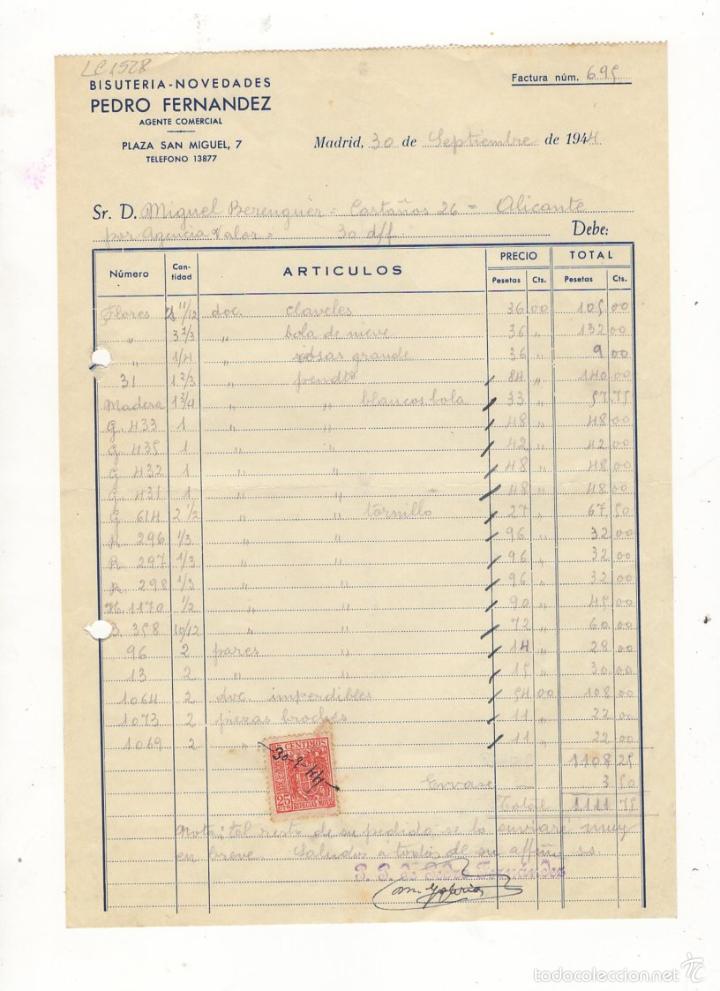 LC 1528
BISUTERIA-NOVEDADES
PEDRO FERNANDEZ
AGENTE COMERCIAL
PLAZA SAN MIGUEL, 7
TELEFONO 13877
Factura núm. 695
Madrid, 30 de Septiembre de 1944
Sr. D. Miguel Berenguer - Castaños 26 = Alicante
por Agencia Valor = 30 d/f Debe:
Número Cantidad ARTICULOS PRECIO TOTAL
Pesetas Cts. Pesetas Cts.
Flores 2 11/12 doc. claveles 36 00 105 00
" 3 2/3 " bola de nieve 36 " 132 00
" 1/4 " rosas grande 36 " 9 00
31 1 2/3 " pendtes 84 " 140 00
Madera 1 3/4 " " blancos bola 33 " 57 75
G. 433 1 " " 48 " 48 00
G. 435 1 " " 42 " 42 00
G. 432 1 " " 48 " 48 00
G. 431 1 " " 48 " 48 00
G 614 2 1/2 " " tornillo 27 " 67 50
R. 296 1/3 " " 96 " 32 00
R. 297 1/3 " " 96 " 32 00
R. 298 1/3 " " 96 " 32 00
H. 1170 1/2 " " 90 " 45 00
B. 358 10/12 " " 72 " 60 00
96 2 pares " 14 " 28 00
13 2 " " 15 " 30 00
1064 2 doc. imperdibles 54 00 108 00
1073 2 piezas broches 11 " 22 00
1069 2 " " 11 " 22 00
1108 25
Envase 3 50
Total 1111 75
25 CENTIMOS
30-9-44
Nota: el resto de su pedido se lo enviaré muy
en breve. Saludos a todos de su affmo. ss.
P. P. Pedro Fernández
todocoleccion.net